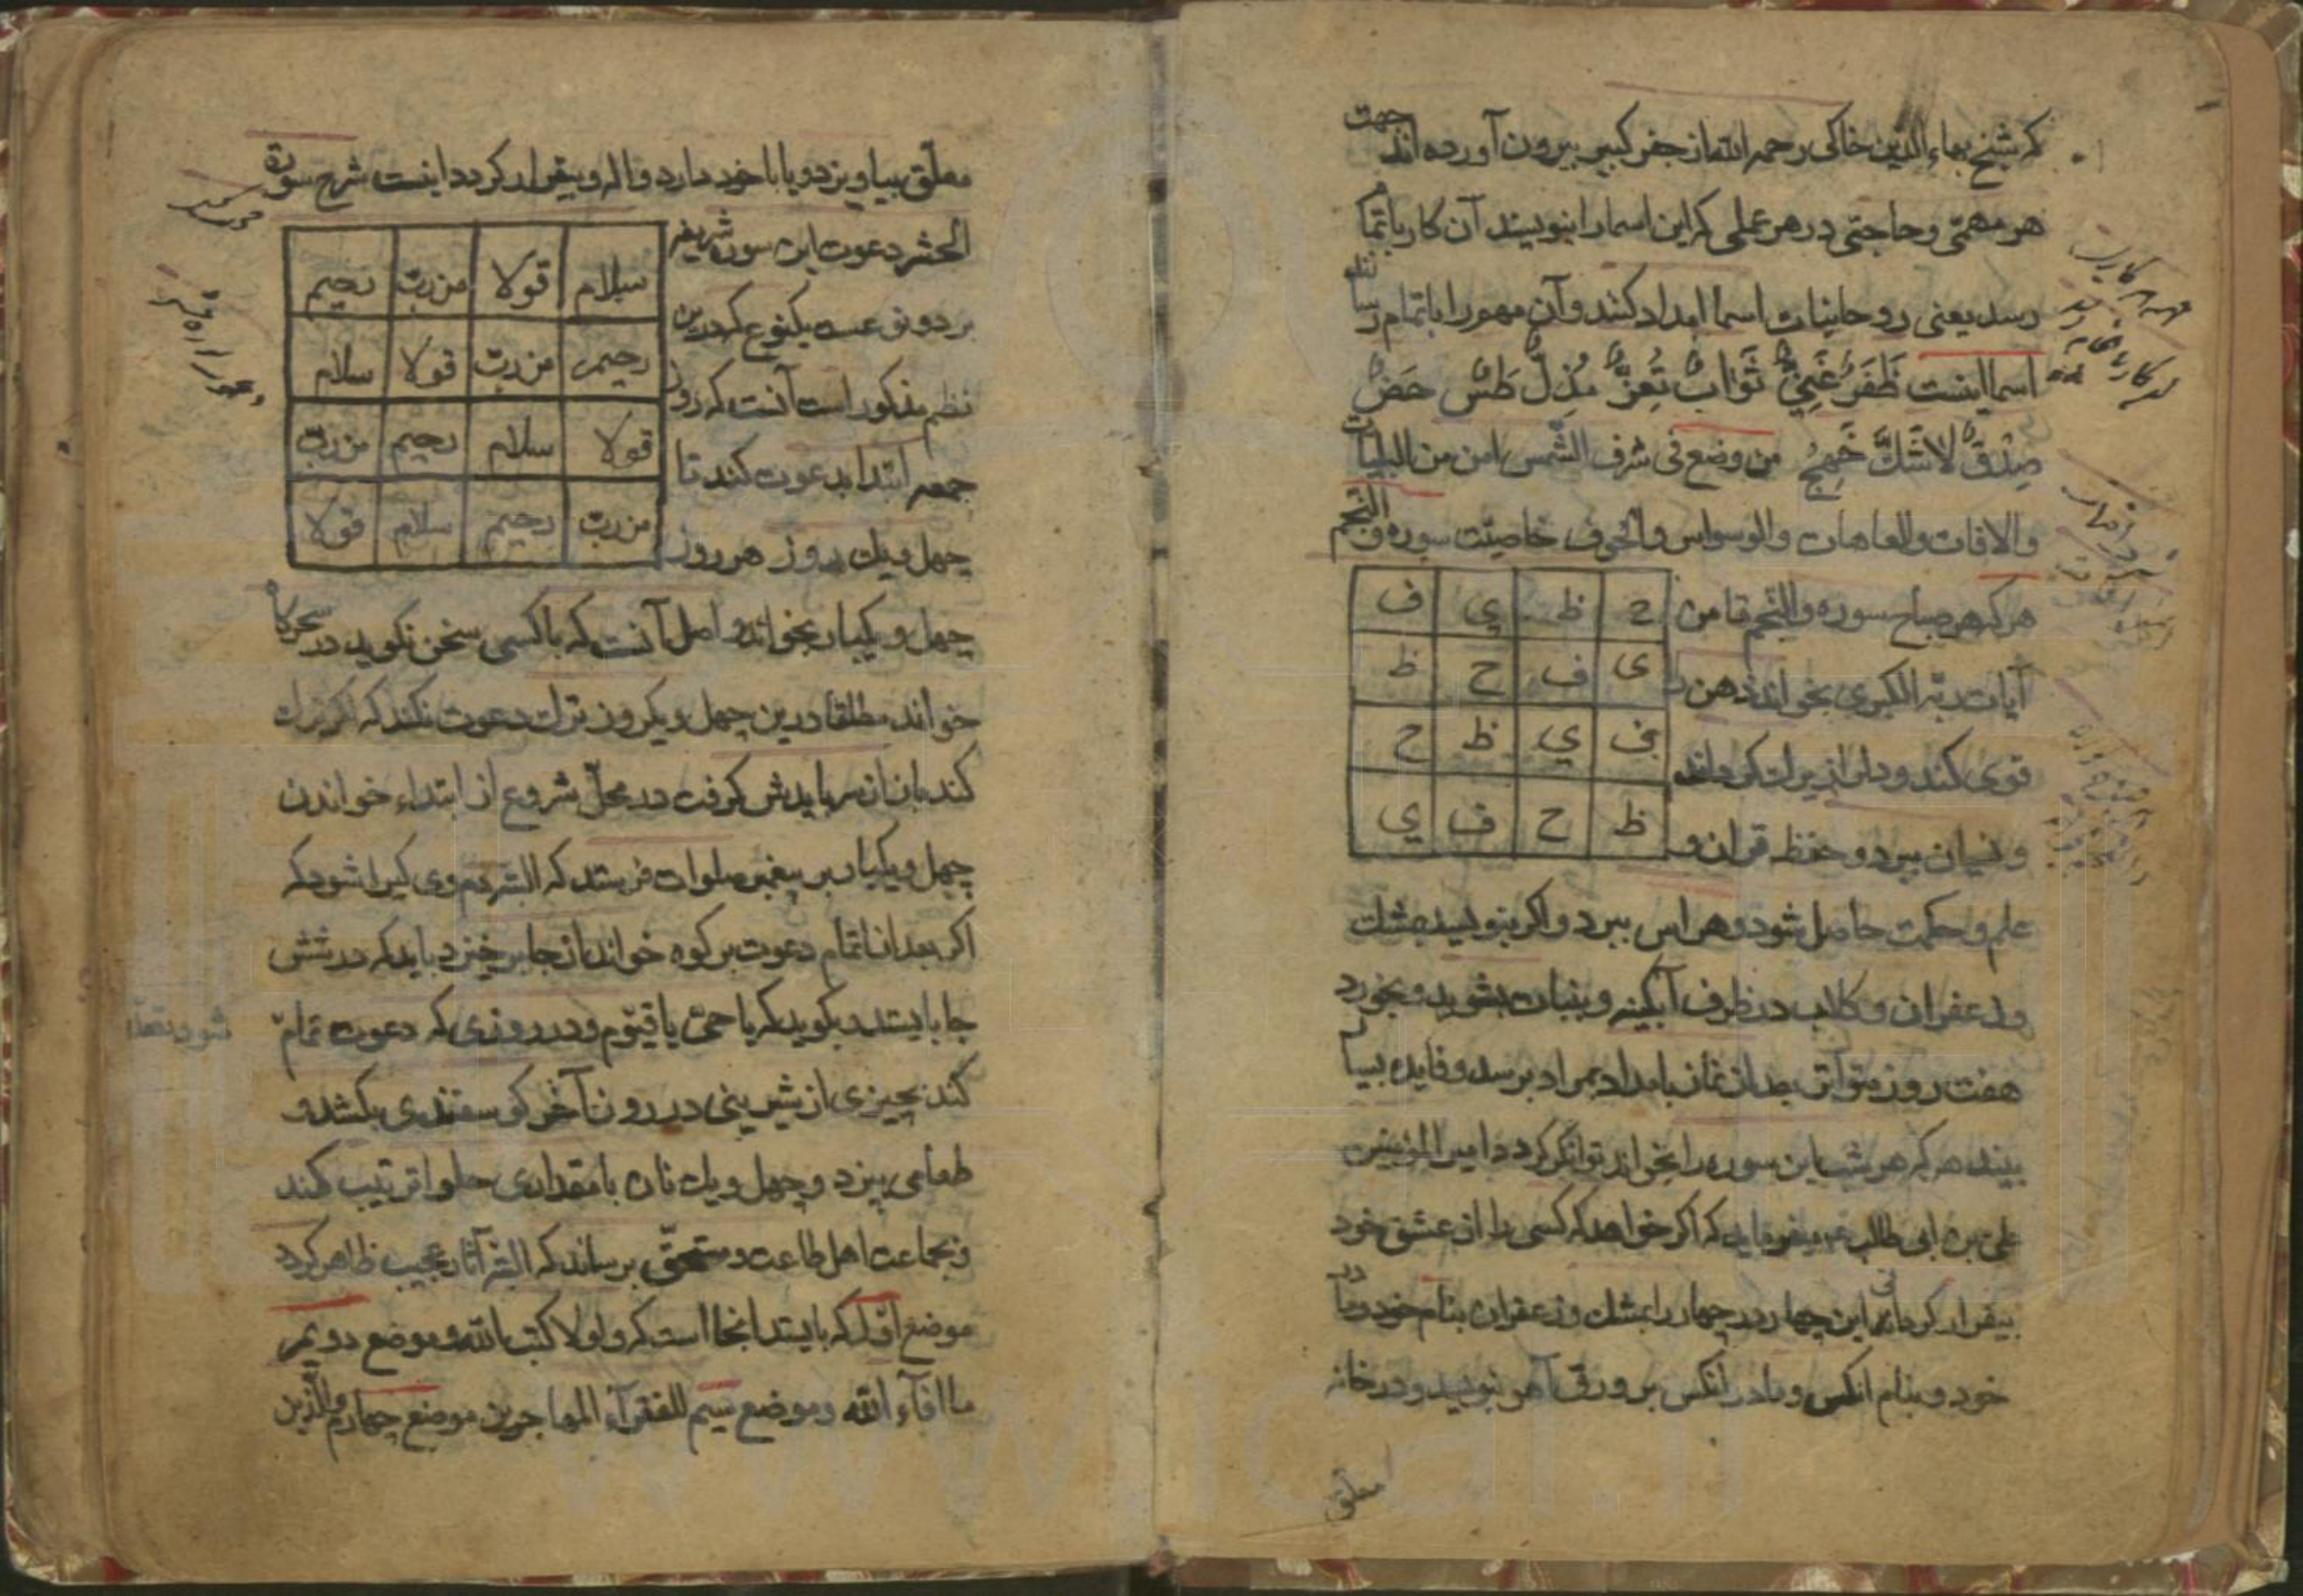 که شیخ بهاء الدین خاکی رحمه الله از جفر کبیر بیرون آورده اند جهت
هر مهمّی و حاجتی در هر عملی که این اسما را بنویسند آن کار باتمام
رسد یعنی روحانیات اسما امداد کنند و آن مهم را باتمام رسانند
اسما اینست ظَفَرٌ غَنِیٌّ ثَوَابٌ تُعِزُّ مُذِلٌّ طَسٌ حَضٌ
صِدْقٌ لاشَكَّ من وضع فی شرف الشّمس امن من البلیات
والافات والعاهات والوسواس والخوف خاصیّت سوره والنّجم
هر که هر صباح سوره والنّجم تا من
ح ظ ی ف
آیات ربّه الکبری بخواند ذهن را
ی ف ح ظ
قوی کند و دل از یرات کرداند
ف ی ظ ح
و نسیان ببرد و حفظ قران و
ظ ح ف ی
علم و حکمت حاصل شود و هراس ببرد و اکر بنویسد بمشك
و زعفران و کلاب در ظرف آبکینه و بنبات بشوید و بخورد
هفت روز متواتر بعد از نماز بامداد بمراد برسد و فایده بسیار
بیند هر که هر شب این سوره را بخواند توانکر کردد امیر المؤمنین
علی بن ابی طالب ع میفرماید که اکر خواهد که کسی را از عشق خود
بیقرار کردانی این چهار در چهار را بمشك و زعفران بنام خود و مادر
خود و بنام انکس و مادر انکس بر ورق آهو بنویسد و در خانه
معلق
معلّق بیاویزد و یا با خود دارد واله و بیقرار کردد اینست شرح سورة
الحشر دعوت این سوره شریفه
سلام قولا من ربّ رحیم
بر دو نوعست یکنوع که درین
رحیم من ربّ قولا سلام
نظم مذکور است آنست که روز
قولا سلام رحیم من ربّ
جمعه ابتدا بدعوت کند تا
من ربّ رحیم سلام قولا
چهل و یك روز هر روز
چهل و یکبار بخواند و اصل آنست که با کسی سخن نکوید در سحرکاه
خواند مطلقا درین چهل و یکروز ترك دعوت نکند که اکر ترك
کند بازان سر بایدش کرفت در محلّ شروع از ابتداء خواندن
چهل و یکبار بر پیغمبر صلوات فرستد که البته دم وی کیرا شود که
اکر بعد از اتمام دعوت بر کوه خواند از جا برخیزد باید که در شش
جا بایستد و بکوید که یا حیّ یا قیّوم و در روزی که دعوت تمام
شود بقصد
کند بچیزی از شیرینی در روز آخر کوسفندی بکشد و
طعامی بپزد و چهل و یك نان با مقداری حلوا ترتیب کند
و بجماعت اهل طاعت و مستحقّ برساند که البته آثار عجیب ظاهر کردد
موضع اوّل که بایستد انجا است که ولولا کتب الله و موضع دویم
ما افآء الله و موضع سیم للفقرآء المهاجرین موضع چهارم والّذین